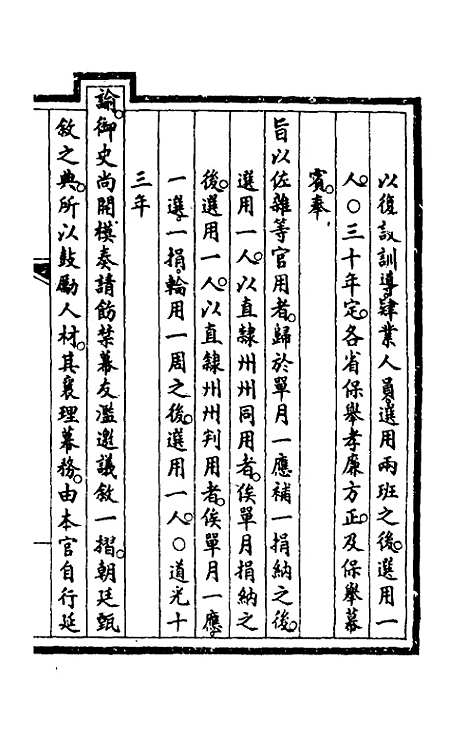 以復設訓導肄業人員選用兩班之後。選用一
人。○三十年定。各省保舉孝廉方正。及保舉幕
賓。奉
旨以佐雜等官用者。歸於單月一應補一捐納之後。
選用一人。以直隸州州同用者。俟單月捐納之
後。選用一人。以直隸州州判用者。俟單月一應
一選。一捐。輪用一周之後。選用一人。○道光十
三年
諭。御史尚開模奏請飭禁幕友濫邀議敘一摺。朝廷甄
敘之典。所以鼓勵人材。其襄理幕務。由本官自行延